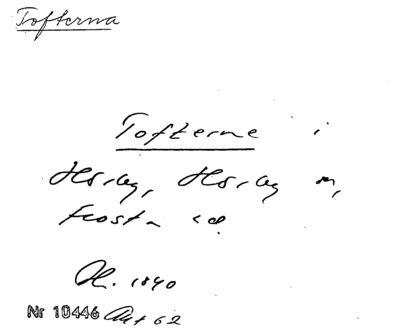 Tofterna
Tofterne i
Hörby, Hörby sn,
Frosta hd.
A. 1840
Nr 10446 Akt 62